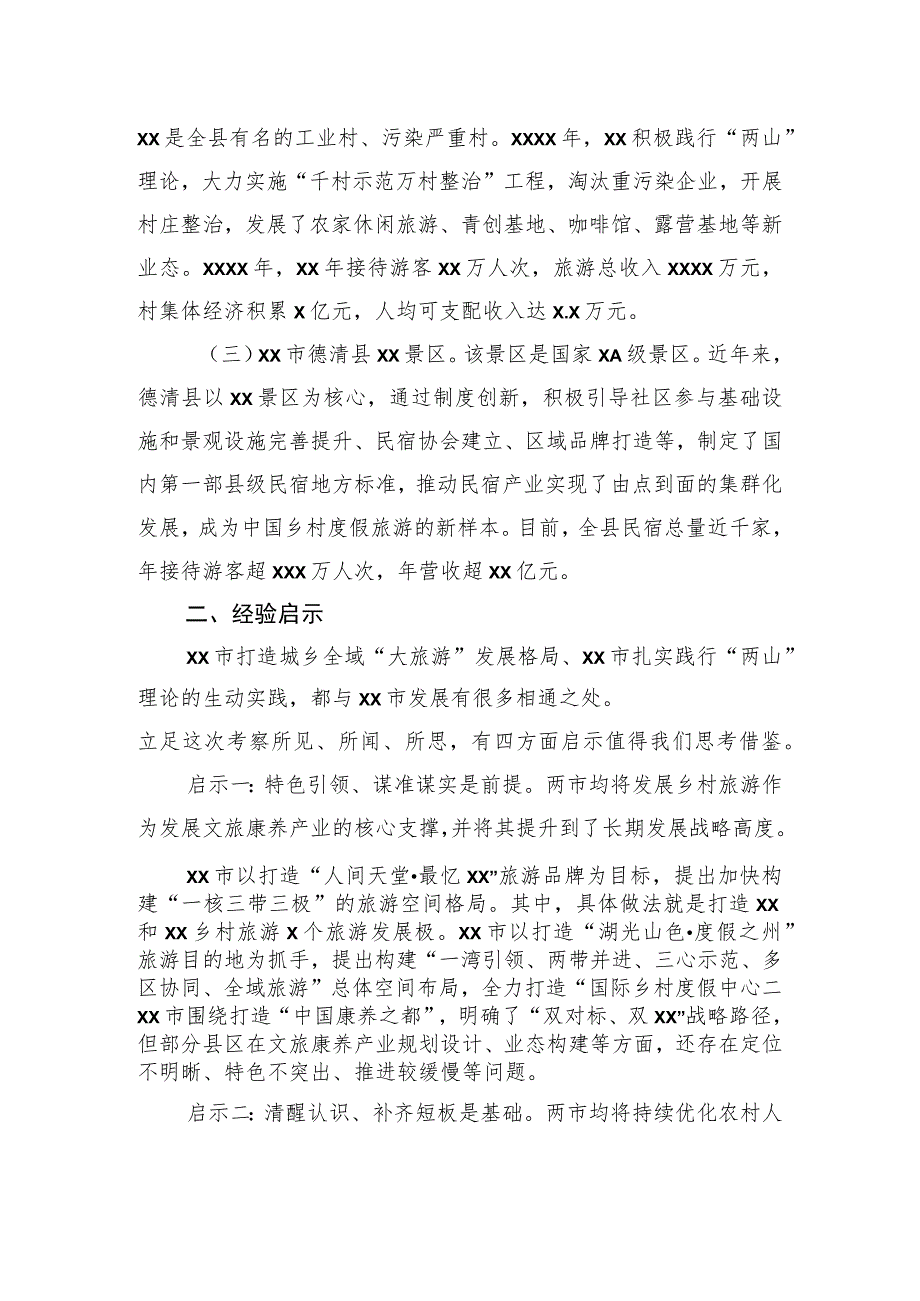 XX是全县有名的工业村、污染严重村。XXXX年，XX积极践行“两山”
理论，大力实施“千村示范万村整治”工程，淘汰重污染企业，开展
村庄整治，发展了农家休闲旅游、青创基地、咖啡馆、露营基地等新
业态。XXXX年，XX年接待游客XX万人次，旅游总收入XXXX万元，
村集体经济积累X亿元，人均可支配收入达X.X万元。
（三）XX市德清县XX景区。该景区是国家XA级景区。近年来，
德清县以XX景区为核心，通过制度创新，积极引导社区参与基础设
施和景观设施完善提升、民宿协会建立、区域品牌打造等，制定了国
内第一部县级民宿地方标准，推动民宿产业实现了由点到面的集群化
发展，成为中国乡村度假旅游的新样本。目前，全县民宿总量近千家，
年接待游客超XXX万人次，年营收超XX亿元。
二、经验启示
XX市打造城乡全域“大旅游”发展格局、XX市扎实践行“两山”
理论的生动实践，都与XX市发展有很多相通之处。
立足这次考察所见、所闻、所思，有四方面启示值得我们思考借鉴。
启示一：特色引领、谋准谋实是前提。两市均将发展乡村旅游作
为发展文旅康养产业的核心支撑，并将其提升到了长期发展战略高度。
XX市以打造“人间天堂•最忆XX”旅游品牌为目标，提出加快构
建“一核三带三极”的旅游空间格局。其中，具体做法就是打造XX
和XX乡村旅游X个旅游发展极。XX市以打造“湖光山色•度假之州”
旅游目的地为抓手，提出构建“一湾引领、两带并进、三心示范、多
区协同、全域旅游”总体空间布局，全力打造“国际乡村度假中心二
XX市围绕打造“中国康养之都”，明确了“双对标、双XX”战略路径，
但部分县区在文旅康养产业规划设计、业态构建等方面，还存在定位
不明晰、特色不突出、推进较缓慢等问题。
启示二：清醒认识、补齐短板是基础。两市均将持续优化农村人